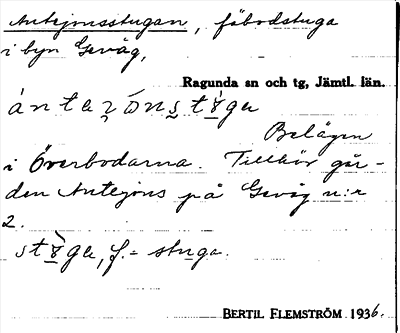 Antejonsstugan, fäbodstuga
i byn Gevåg,
Ragunda sn och tg, Jämtl. län.
Belägen
i Överbodarna. Tillhör går-
den Antejons på Gevåg n:r
2.
f. = stuga.
BERTIL FLEMSTRÖM 1936.